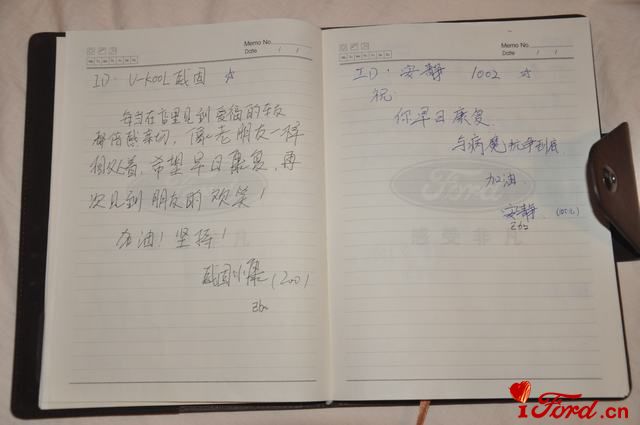 Memo No.
Date / /
ID. U-KOOL 威固 ☆
每当在店里见到爱福的车友
都倍感亲切,像老朋友一样
相处着,希望早日康复,再
次见到朋友的欢笑!
加油!坚持!
威固小 (200)
Memo No.
Date / /
ID. 安静 1002 ☆
祝
你早日康复
与病魔抗争到底
加油
安静
Ford
感受非凡
iFord.cn